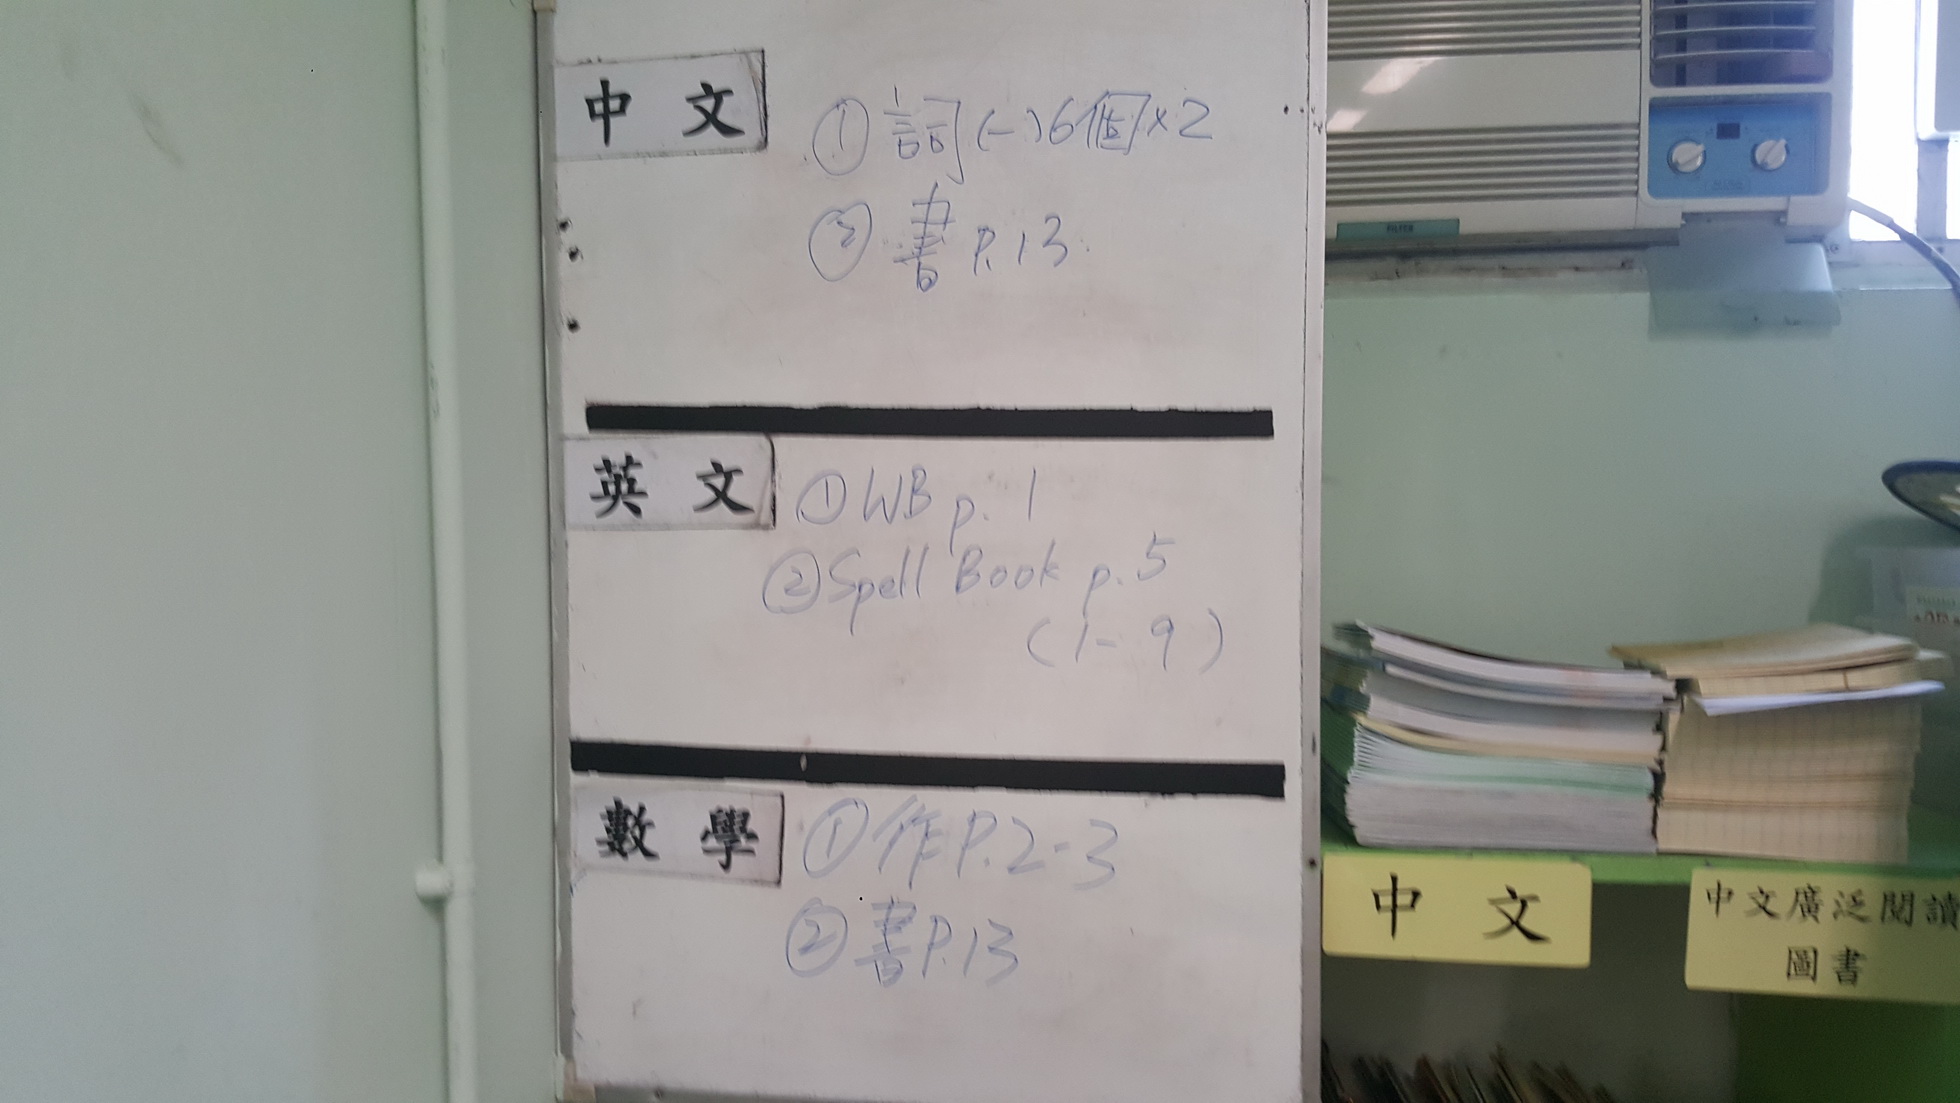 中文
① 詞(一)6個×2
② 書 P.13
英文
① WB p. 1
② Spell Book p. 5
(1-9)
數學
① 作 P.2-3
② 書 P.13
FILTER
中文
中文廣泛閱讀
圖書